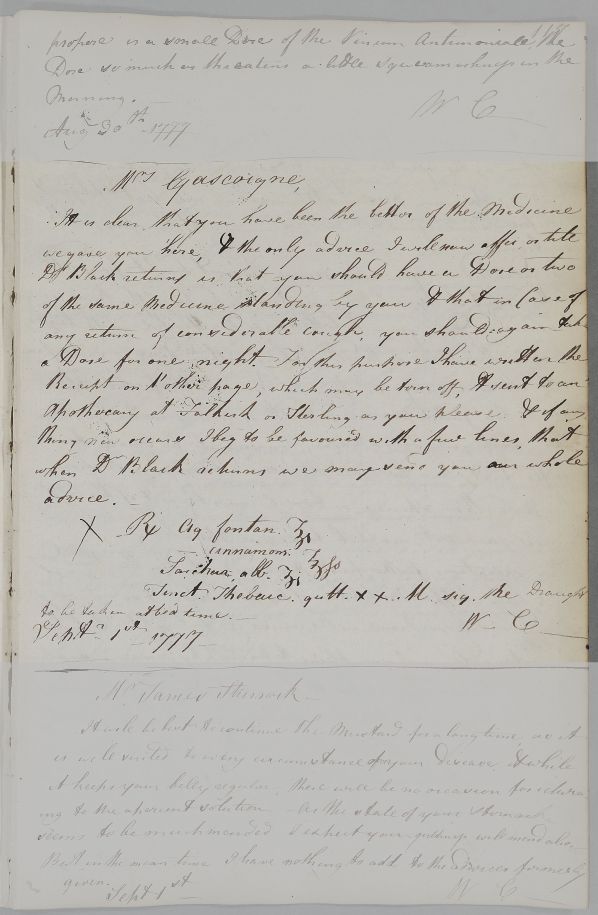 propose is a small Dose of the Vinum Antimoniale the
Dose so much as threatens a little squeamishness in the
Morning.
W C
Aug 30th 1777
Mrs Gascoigne,
It is clear that you have been the better of the Medicine
we gave you here, & the only advice I will now offer, or till
Dr Black returns is that you should have a Dose or two
of the same Medicine standing by you & that in Case of
any return of considerable cough, you should again take
a Dose for one night. For this purpose I have written the
Receipt on t'other page, which may be torn off, & sent to an
Apothecary at Falkirk or Sterling as you please. & if any
thing new occurs I beg to be favoured with a few lines, that
when Dr Black returns we may send you our whole
advice. —
X ℞ Aq fontan. ℥i
cinnamom. ℥ſs
Sacchar. alb. ʒi
Tinct. Thebaic. gutt. x x. M. sig. the Draught
to be taken at bed time. —
W C
Septr 1st 1777
Mr James
It will be best to continue the Mustard for a long time, as it
is well suited to every circumstance of your Disease, & while
it keeps your belly regular, there will be no occasion for
ing to the aperient solution. As the state of your stomach
seems to be much mended I expect your will mend also.
But in the mean time I have nothing to add to the advices formerly
given.
Sept 1st
W C